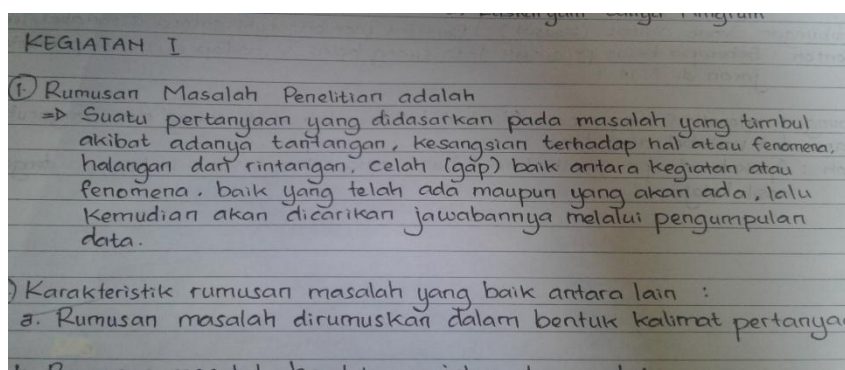 KEGIATAN I
1. Rumusan Masalah Penelitian adalah
=> Suatu pertanyaan yang didasarkan pada masalah yang timbul
akibat adanya tantangan, kesangsian terhadap hal atau fenomena,
halangan dan rintangan, celah (gap) baik antara kegiatan atau
fenomena, baik yang telah ada maupun yang akan ada, lalu
kemudian akan dicarikan jawabannya melalui pengumpulan
data.
) Karakteristik rumusan masalah yang baik antara lain :
a. Rumusan masalah dirumuskan dalam bentuk kalimat pertanya